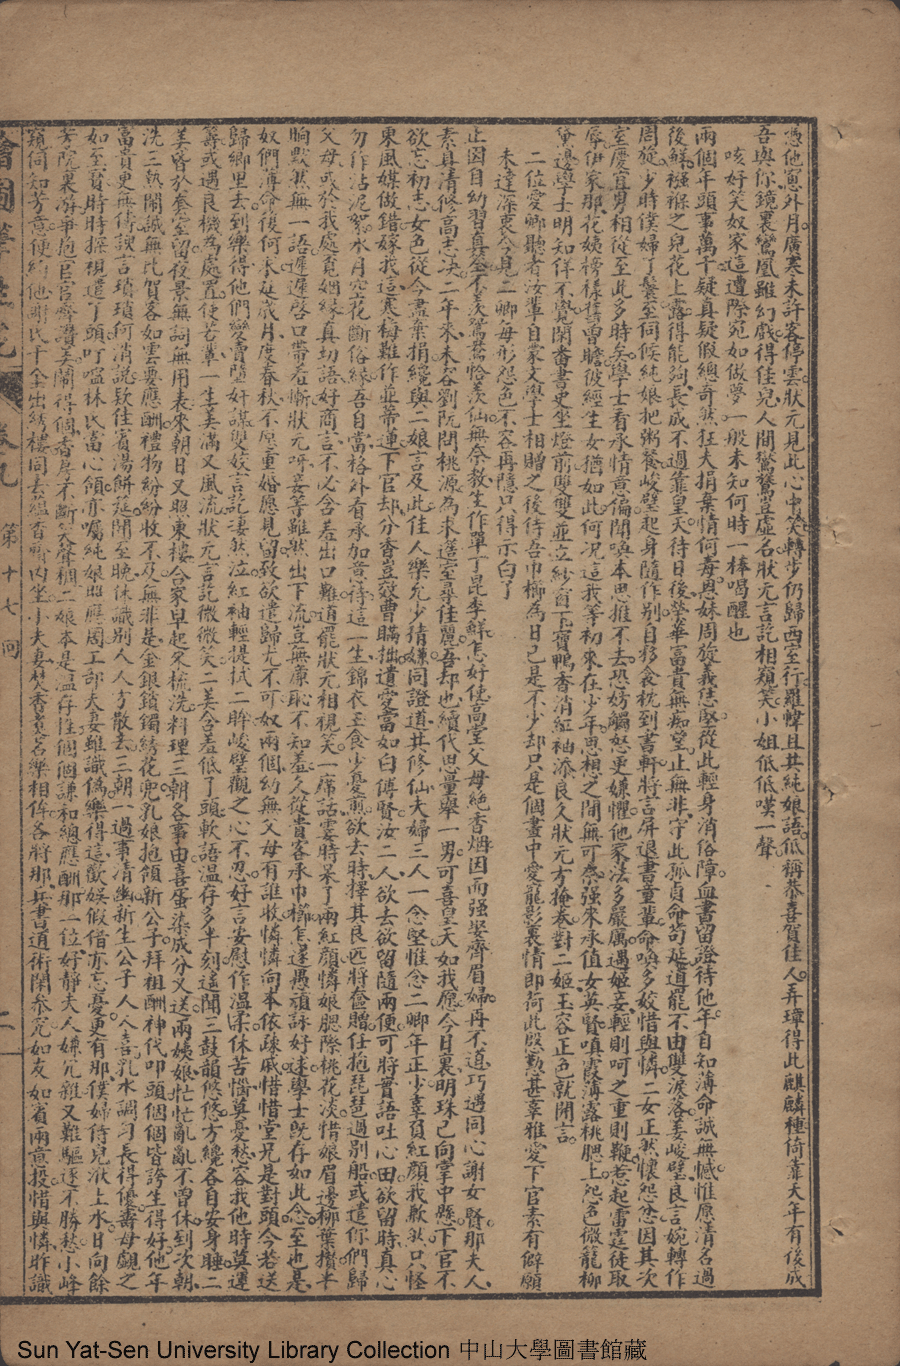 憑他窻外月廣寒未許客停雲狀元見此心中笑轉步仍歸西室行羅幃且共純娘語低稱恭喜賀佳人弄璋得此麒麟種倚靠天年有後成
吾與你鏡裏鸞凰雖幻戲得佳兒人間鴛鴦豈虛名狀元言訖相窺笑小姐低低嘆一聲
咳好笑奴家這遭際宛如做夢一般未知何時一棒喝醒也
兩個年頭事萬千疑真疑假總奇然狂夫捐棄情何毒恩妹周旋義恁堅從此輕身消俗障血書留證待他年自知薄命誠無憾惟愿清名過
後鮮襁褓之兒花上露得能夠長成不過靠皇天待日後榮華富貴無痴望止無非守此孤貞命苟延道罷不由雙淚落姜峻璧良言婉轉作
周旋少時僕婦丫鬟至伺候純娘把粥餐峻璧起身隨作別自移衾枕到書軒將言屏退書童輩命喚多姣惜與憐二女正然懷怨恣因其次
室慶宜男相從至此多時矣學士看承情意偏聞喚本思推不去恐妨觸怒更嫌懼他家法多嚴厲遇姬妾輕則呵之重則鞭惹起雷霆徒取
辱伊家那花姨榜樣怪曾瞻彼經生女猶如此何況這我等初來在少年思想之間無可奈強來承值女英賢嗔霞薄露桃腮上怨色微籠柳
黛邊學士明知佯不覺閑番書史坐燈前雙雙並立紗窗下寶鴨香消紅袖添良久狀元方掩卷對二姬玉容正色就開言
二位愛卿聽者汝輩自蒙文學士相贈之後侍吾巾櫛為日已是不少却只是個畫中愛寵影裏情郎荷此慇懃甚辜雅愛下官素有僻願
未達深衷今見二卿每形怨色不容再隱只得示白了
止因自幼習真筌不羨鴛鴦恰羨仙無奈教生作單丁昆季鮮怎好使高堂父母絕香烟因而強娶齊眉婦再不道巧遇同心謝女賢那夫人
素具清修高志决二年來未容劉阮問桃源為求簉室尋佳麗吾却也續代思量舉一男可喜皇天如我愿今日裏明珠已向掌中懸下官不
欲忘初志女色從今盡棄捐纔與二娘言及此佳人樂允少猜嫌同證道共修仙夫婦三人一念堅惟念二卿年正少辜負紅顏我歉然只怪
東風媒做錯嫁我這寒梅難作並蒂蓮下官却分香豈效曹瞞拙遣愛當如白傅賢汝二人欲去欲留隨兩便可將實語吐心田欲留時真心
勿作沾泥絮水月空花斷俗緣吾自當格外看承加意待這一生錦衣玉食少憂煎欲去時擇其良匹將奩贈任抱琵琶過別船或遣你們歸
父母或於我處覓姻緣真切語好商言不必含羞出口難道罷狀元相視笑一席話霎時呆了兩紅顏憐娘腮際桃花淡惜娘眉邊柳葉攢半
晌默然無一語遲遲啓口帶羞慚狀元呀妾等雖然出下流豈無廉恥不知羞久從貴客承巾櫛怎遂愚頑詠好逑學士既存如此念念至也是
奴們薄命後何求延歲月度春秋不愿重婚應見留致欲遣歸尤不可奴兩個幼無父母有誰收憐憐向本依疎戚惜惜堂兄是對頭今若送
歸鄉里去到樂得他們變賣墮奸謀雙姣言訖淒然泣紅袖輕提拭二眸峻璧觀之心不忍好言安慰作溫柔休苦惱莫憂愁容我他時莫運
籌或遇良機為處置使若輩一生美滿又風流狀元言訖微微笑二美含羞低了頭軟語溫存多半刻遙聞三鼓韻悠悠方纔各自安身睡二
美皆於套室留夜景無詞無用表來朝日又照東樓合家早起來梳洗料理三朝各事由喜蛋染成分又送兩姨娘忙忙亂亂不曾休到次朝
洗三熱鬧誠無比賀客如雲要應酬禮物紛紛收不及無非是金銀鎖鐲綉花兜乳娘抱領新公子拜祖酬神代叩頭個個皆誇生得好他年
富貴更無儔諛言瑣瑣何消說欵住賓湯餅筵開至晚休識別人人方散去三朝一過事清幽新生公子人人喜乳水調勻長得優壽母觀之
如至寶時時探視遣丫頭叮嚀林氏當心領亦囑純娘照應周工部夫妻雖識偽樂得這歡娛假借亦忘憂更有那僕婦侍兒湫上水日向餘
芳院裏游爭抱官官齊讚美鬧得個香房不斷笑聲稠二娘本是溫存性個個謙和總應酬那一位好靜夫人嫌冗雜又難驅逐不勝愁小峰
窺伺知芳意便約他謝氏千金出綉樓同去蘊香齋內坐小夫妻焚香煮茗樂相侔各將那兵書道術閒參究如友如賓兩意投惜與憐昨識
繪圖筆生花
卷九
第十七回
二
Sun Yat-Sen University Library Collection 中山大學圖書館藏